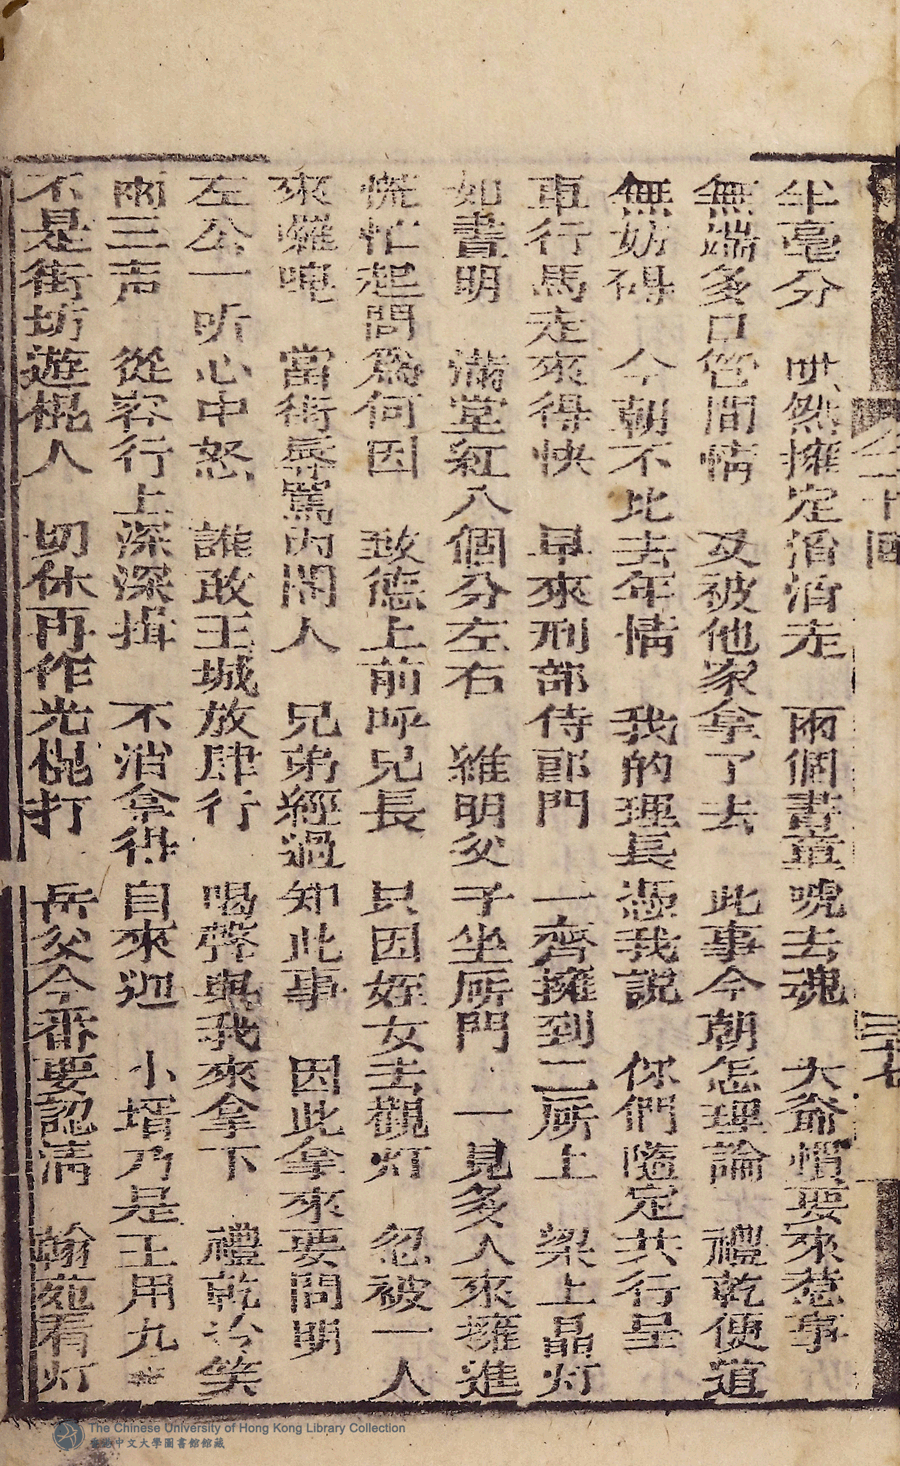 半毫分　哄然擁定滔滔走　兩個書童唬去魂　大爺慣要來惹事
無端多口管間情　及被他家拿了去　此事今朝怎理論　禮乾便道
無妨得　今朝不比去年情　我的理長憑我說　你們隨定共行呈
車行馬走來得快　早來刑部侍郎門　一齊擁到二厛上　梁上晶灯
如晝明　滿堂紅八個分左右　維明父子坐厛門　一見多人來擁進
慌忙起問爲何因　致德上前呼兄長　只因姪女去觀灯　忽被一人
來囉唣　當街辱罵內閣人　兄弟經過知此事　因此拿來要問明
左公一听心中怒　誰敢王城放肆行　喝聲與我來拿下　禮乾冷笑
兩三声　從容行上深深揖　不消拿得自來迎　小壻乃是王用九
不是街坊遊棍人　切休再作光棍打　岳父今番要認清　翰苑看灯
二十回
三十七
The Chinese University of Hong Kong Library Collection
香港中文大學圖書館館藏